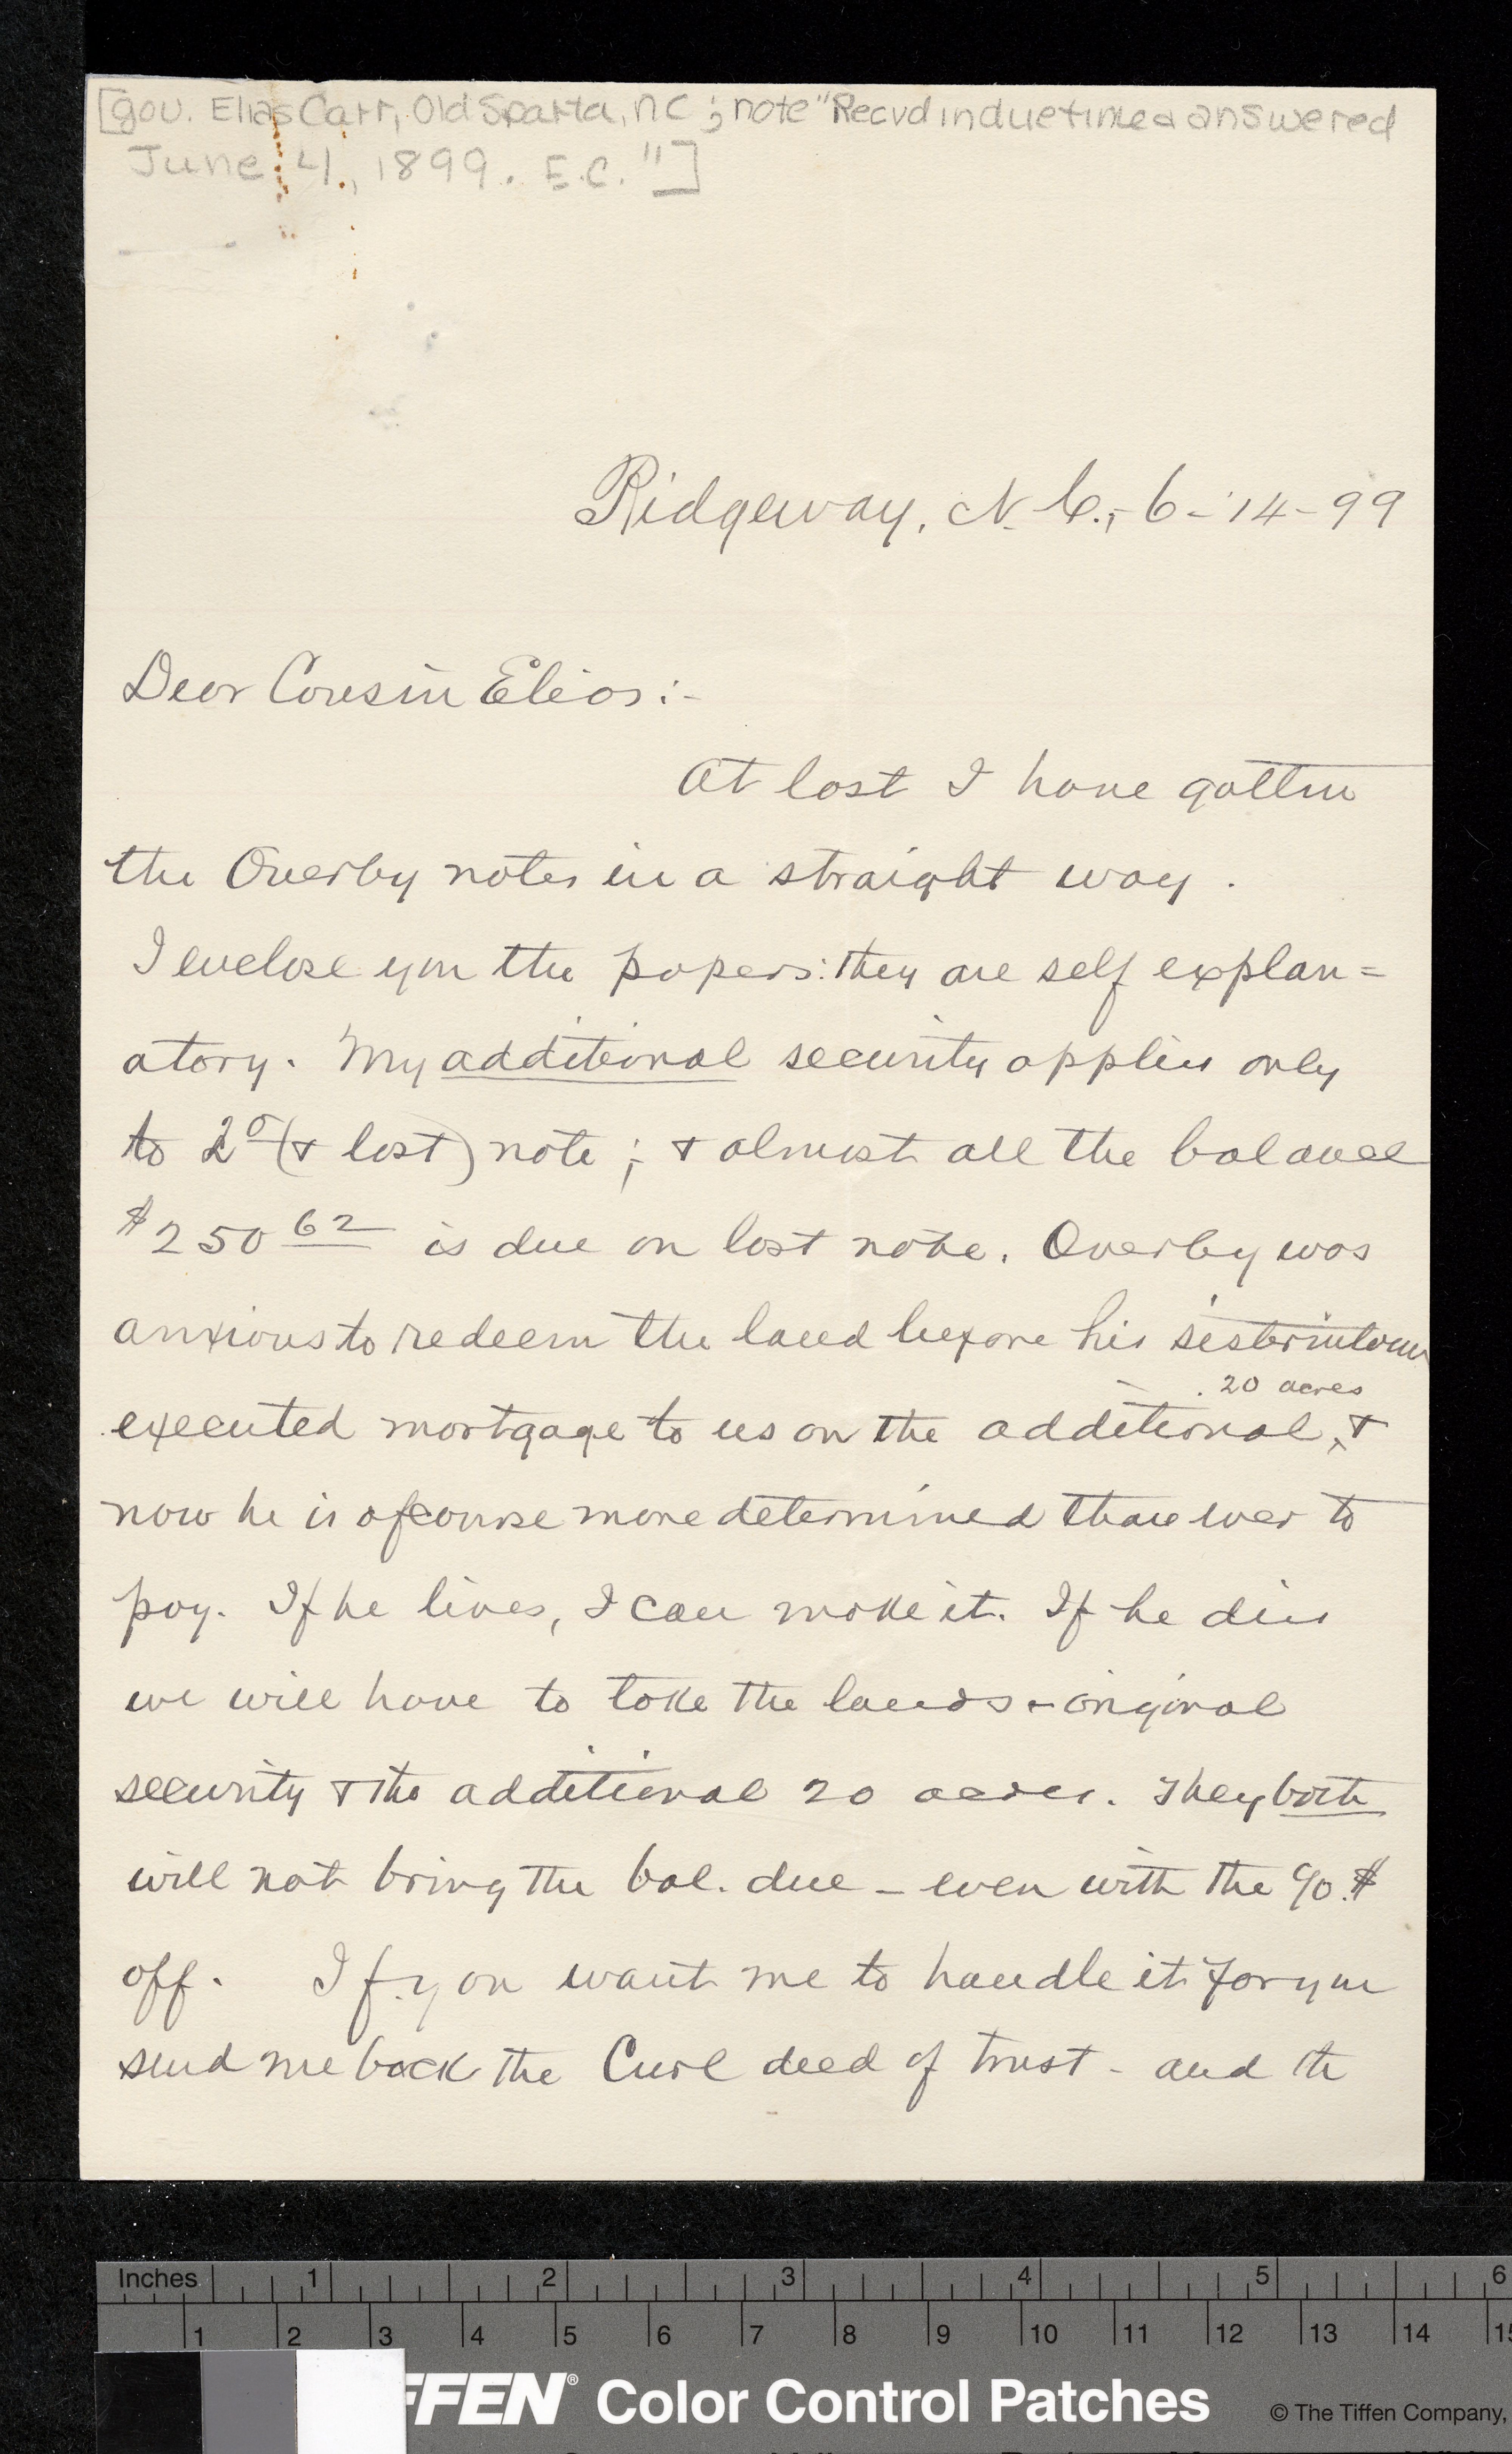 [gov. Elias Carr, Old Sparta, NC ; note "Recvd in due time & answered
June 4, 1899. E.C."]
Ridgeway, N.C., 6-14-99
Dear Cousin Elias:-
At last I have gotten
the Overby notes in a straight way.
I enclose you the papers: they are self explan=
atory. My additional security applies only
to 2d (& last) note; & almost all the balance
$250 62 is due on last note. Overby was
anxious to redeem the land before his sisterinlaw
20 acres
executed mortgage to us on the additional, &
now he is of course more determined than ever to
pay. If he lives, I can make it. If he dies
we will have to take the lands - original
security & the additional 20 acres. They both
will not bring the bal. due - even with the 90.$
off. If you want me to handle it for you
send me back the Curl deed of trust - and th
Inches 1 2 3 4 5 6
1 2 3 4 5 6 7 8 9 10 11 12 13 14 15
FFEN® Color Control Patches
© The Tiffen Company,